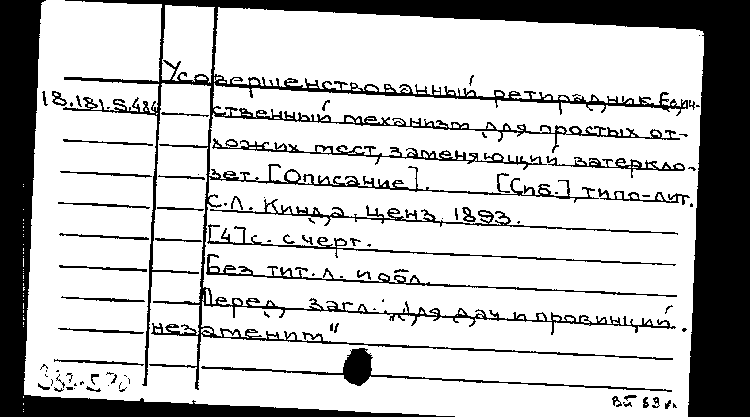 Усовершенствованный ретирадник. Един-
18.181.5.484
ственный механизм для простых от-
хожих мест, заменяющий ватеркло-
зет. [Описание]. [Спб.], типо-лит.
С.Л. Кинда, ценз, 1893.
[4] с. с черт.
Без тит. л. и обл.
Перед загл.: „Для дач и провинций
незаменим"
332-570